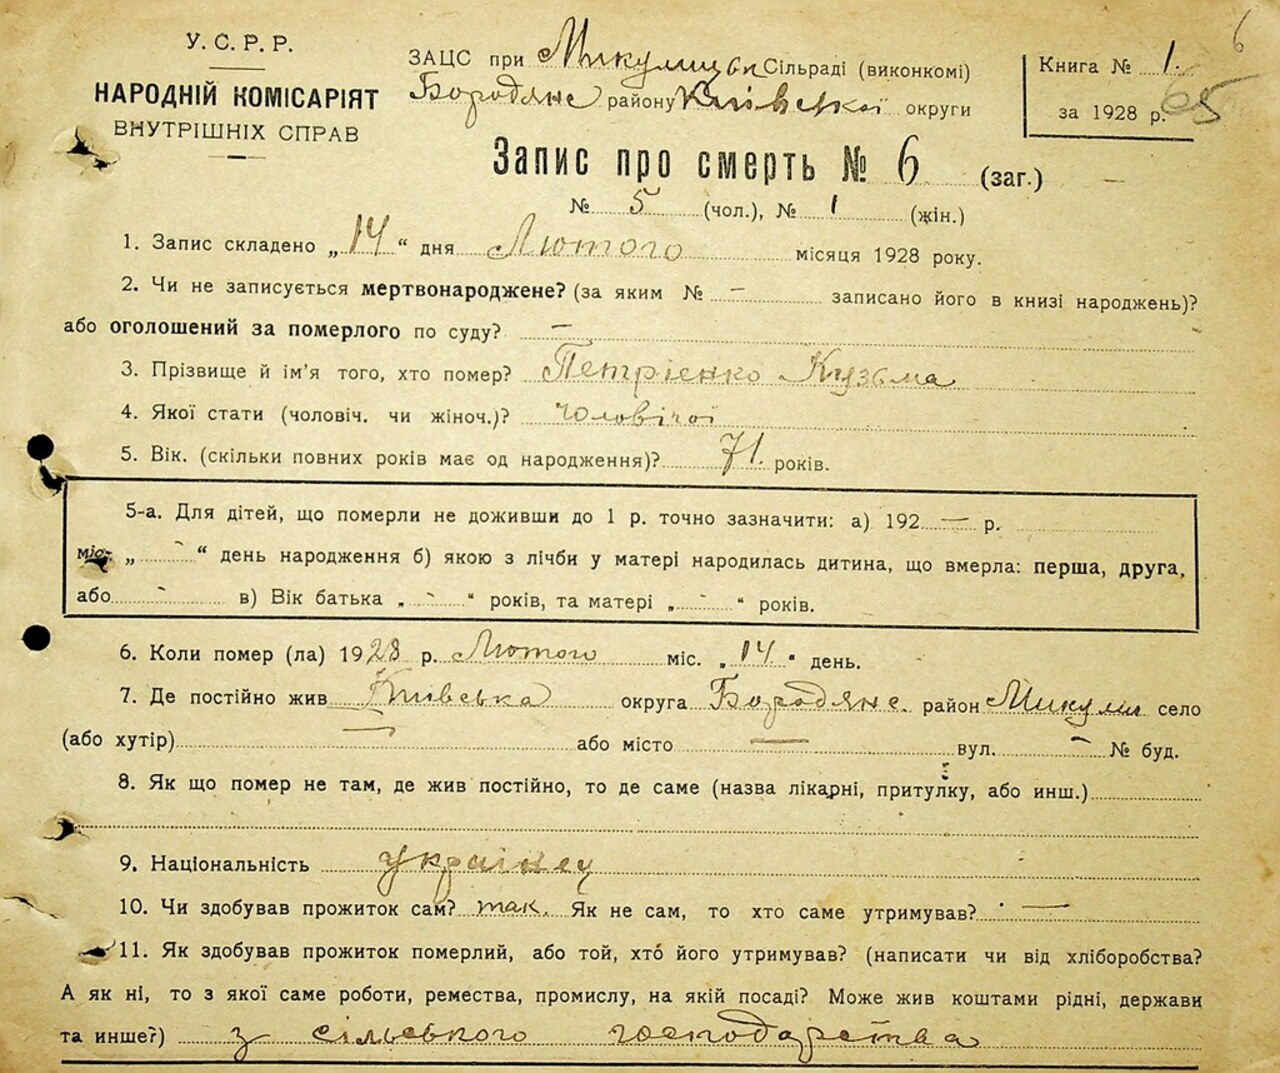 6
У. С. Р. Р.
НАРОДНІЙ КОМІСАРІЯТ
ВНУТРІШНІХ СПРАВ
ЗАЦС при Микулицьк Сільраді (виконкомі)
Бородянс району Київської округи
Книга № 1.
за 1928 р. 65
Запис про смерть № 6 (заг.) —
№ 5 (чол.), № 1 (жін.)
1. Запис складено „14“ дня Лютого місяця 1928 року.
2. Чи не записується мертвонароджене? (за яким № — записано його в книзі народжень)?
або оголошений за померлого по суду? —
3. Прізвище й ім'я того, хто помер? Петрієнко Кузьма
4. Якої стати (чоловіч. чи жіноч.)? чоловічої
5. Вік. (скільки повних років має од народження)? 71. років.
5-а. Для дітей, що померли не доживши до 1 р. точно зазначити: а) 192 — р.
міс. „ - “ день народження б) якою з лічби у матері народилась дитина, що вмерла: перша, друга,
або - в) Вік батька „ - “ років, та матері „ - “ років.
6. Коли помер (ла) 1928 р. Лютого міс. „14“ день.
7. Де постійно жив Київська округа Бородянс. район Микулич село
(або хутір) — або місто — вул. - № буд.
8. Як що помер не там, де жив постійно, то де саме (назва лікарні, притулку, або инш.)
9. Національність українец
10. Чи здобував прожиток сам? так. Як не сам, то хто саме утримував? —
11. Як здобував прожиток померлий, або той, хто його утримував? (написати чи від хліборобства?
А як ні, то з якої саме роботи, ремества, промислу, на якій посаді? Може жив коштами рідні, держави
та инше?) з сільського господарства